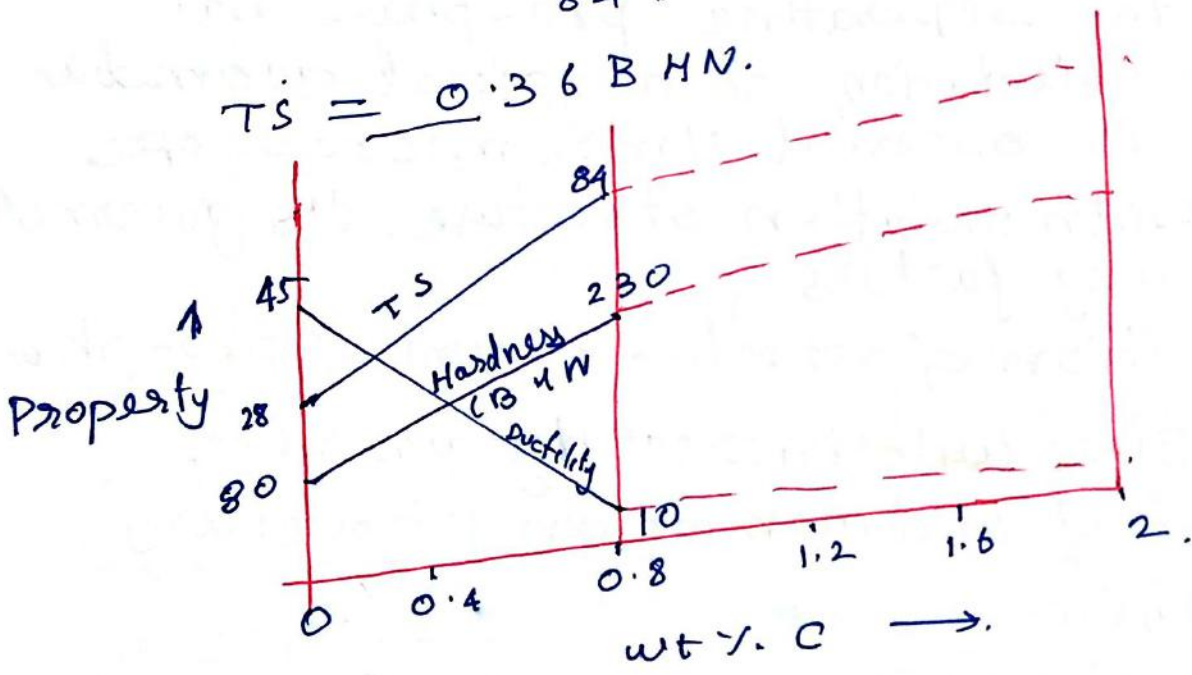 TS = 0.36 BHN.
84
45
TS
230
Hardness
(BHN
Property
28
Ductility
80
10
0
0.4
0.8
1.2
1.6
2.
wt %. C